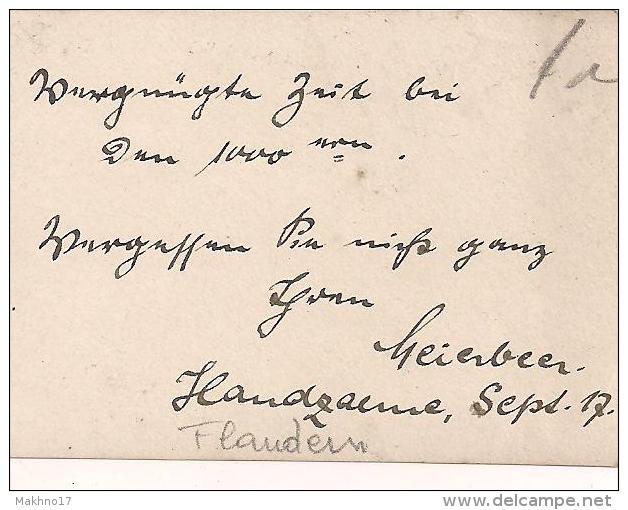 Vergnügte Zeit bei
den 1000 ern.
Vergessen Sie nicht ganz
Ihren
Meierbeer.
Handzaeme, Sept. 17.
Flandern
Makhno17
www.delcampe.net